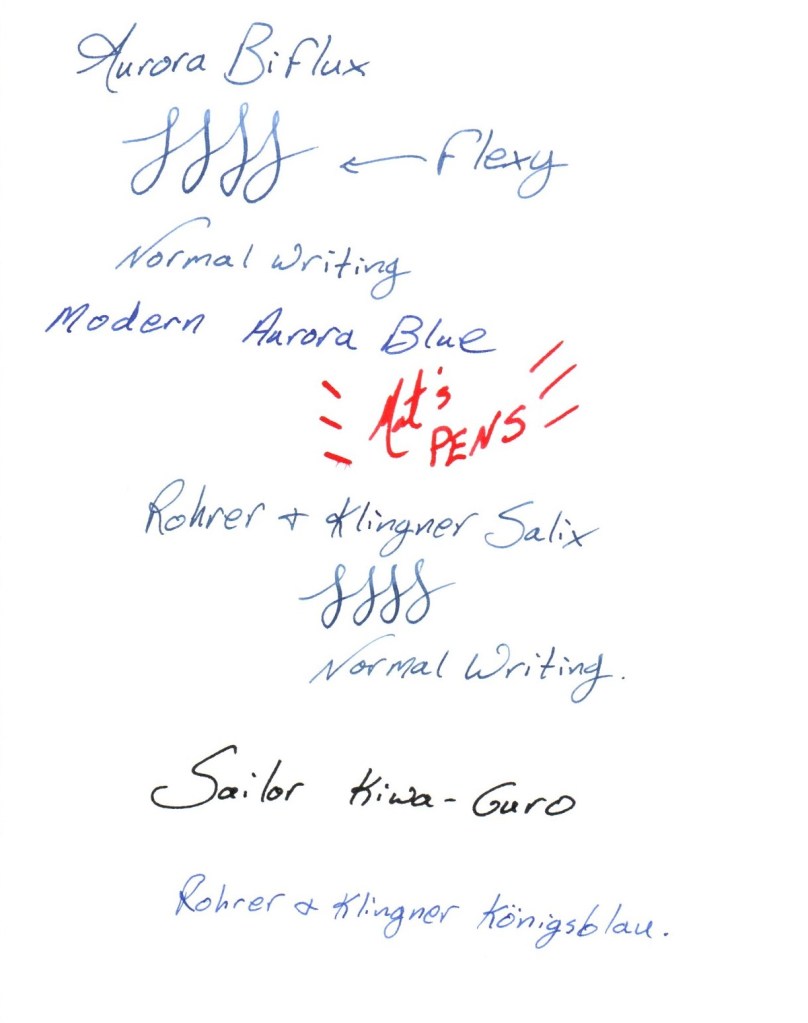 Aurora Biflux
← Flexy
Normal Writing
Modern Aurora Blue
Mat's
PENS
Rohrer & Klingner Salix
Normal Writing.
Sailor Kiwa-Guro
Rohrer & Klingner Königsblau.